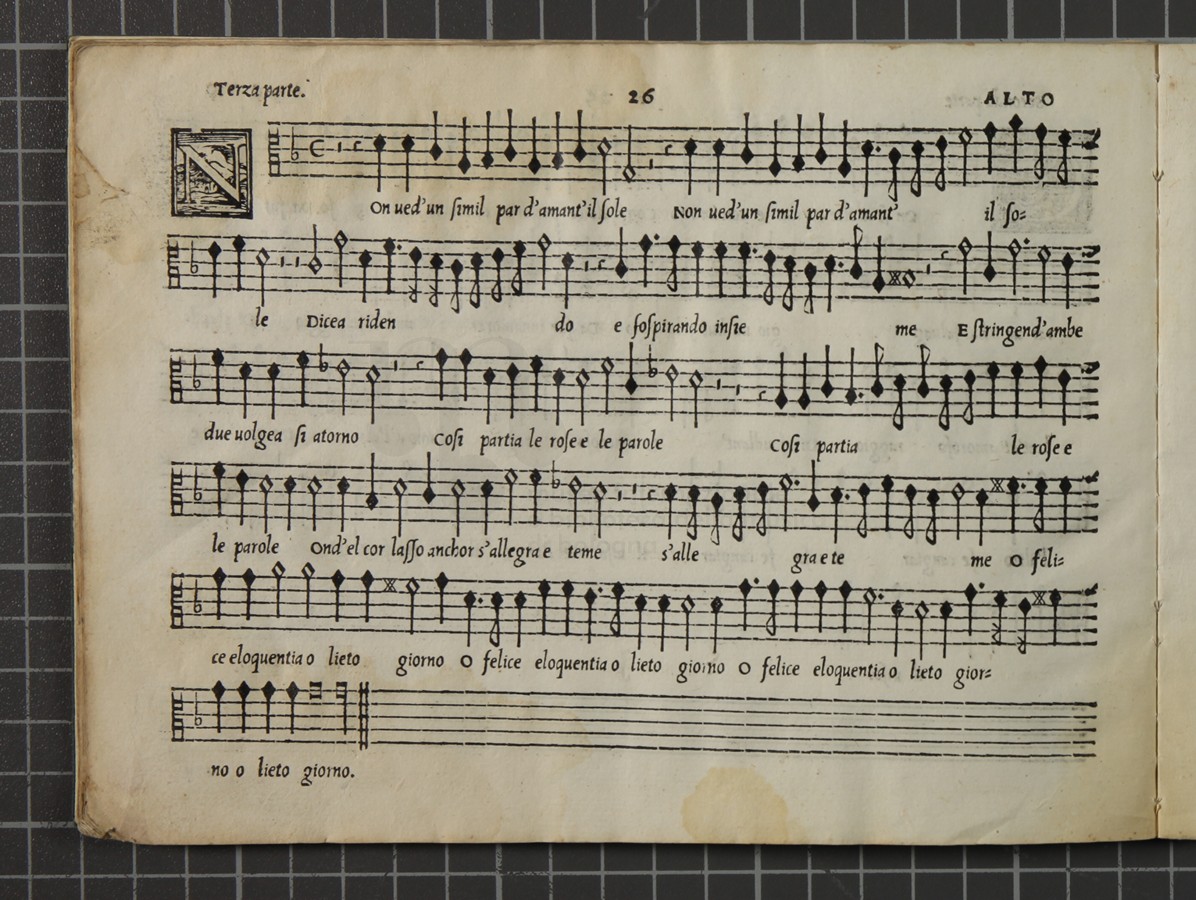 Terza parte. 26 ALTO
NOn ued'un ſimil par d'amant'il ſole Non ued'un ſimil par d'amant' il ſo=
le Dicea riden do e ſoſpirando inſie me E ſtringend'ambe
due uolgea ſi atorno Coſi partia le roſe e le parole Coſi partia le roſe e
le parole Ond'el cor laſſo anchor s'allegra e teme s'alle gra e te me O feli=
ce eloquentia o lieto giorno O felice eloquentia o lieto giorno O felice eloquentia o lieto gior=
no o lieto giorno.